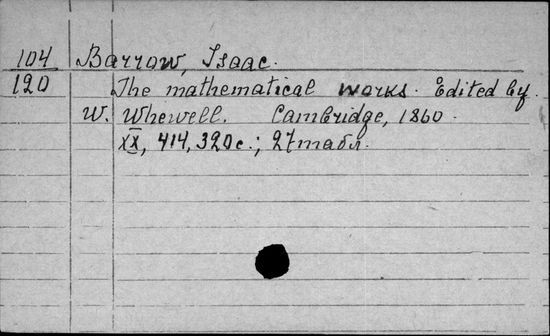 104 Barrow, Isaac.
120 The mathematical works. Edited by
W. Whewell. Cambridge, 1860.
XX, 414, 320 с.; 27 табл.